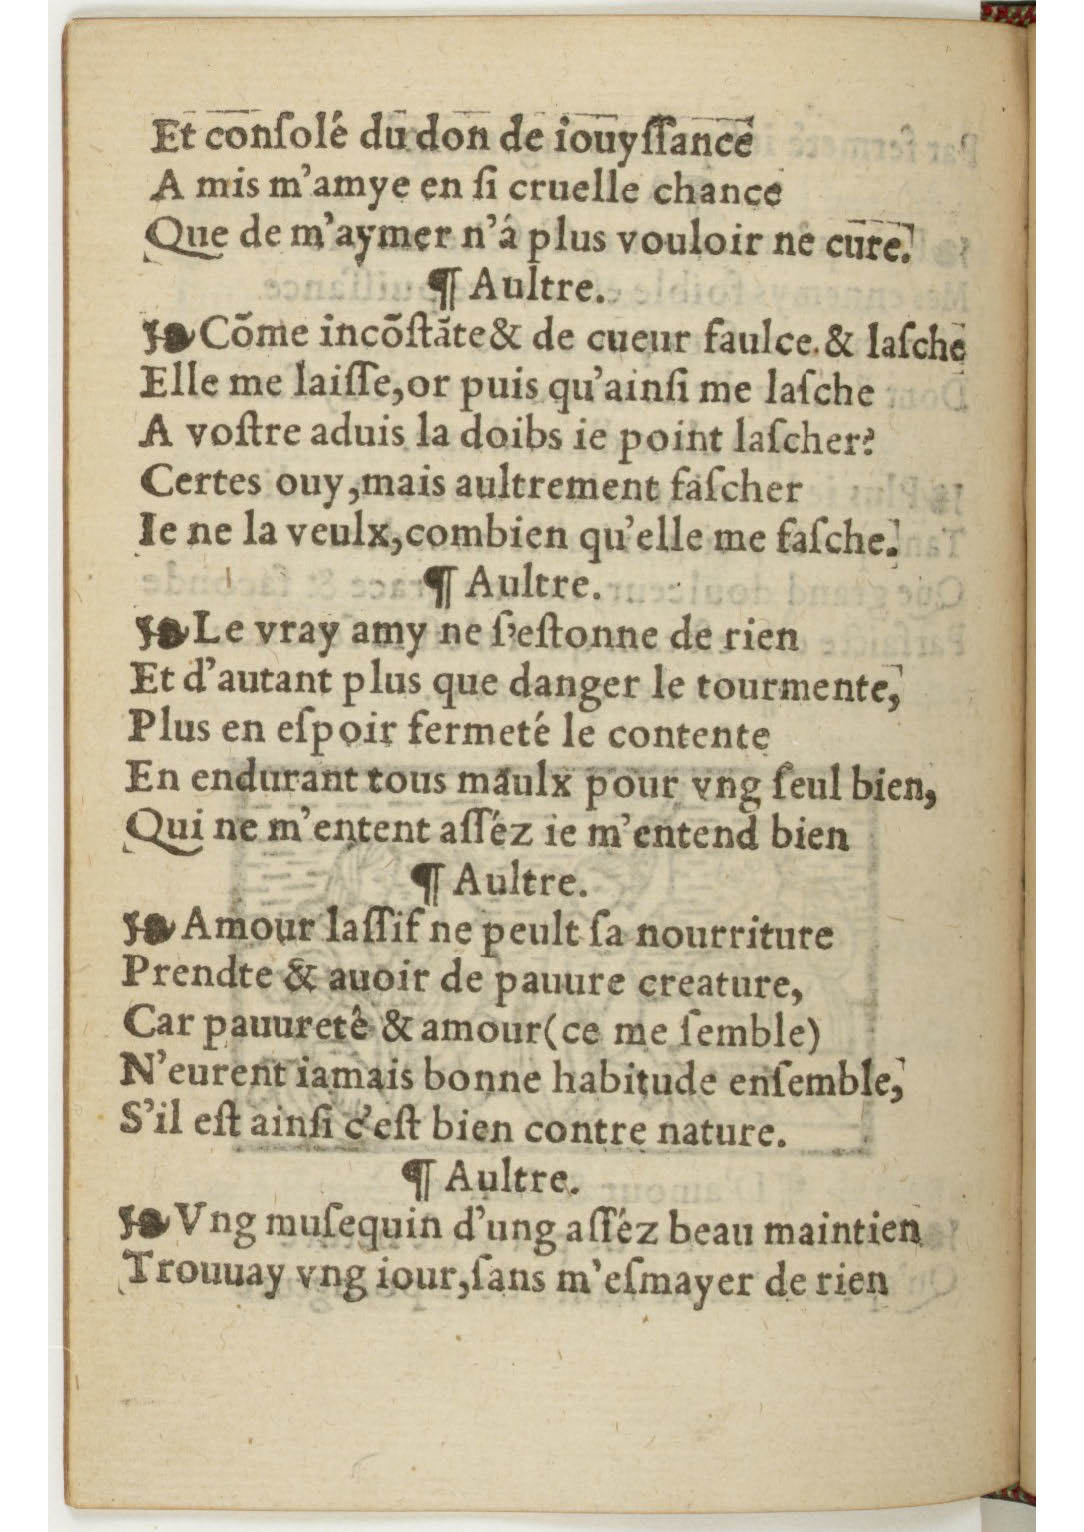 Et conſolé du don de iouyſſance
A mis m'amye en ſi cruelle chance
Que de m'aymer n'á plus vouloir ne cure.
¶ Aultre.
❧ Cõme incõſtãte & de cueur faulce. & laſche
Elle me laiſſe, or puis qu'ainſi me laſche
A voſtre aduis la doibs ie point laſcher?
Certes ouy, mais aultrement faſcher
Ie ne la veulx, combien qu'elle me faſche.
¶ Aultre.
❧ Le vray amy ne ſ'eſtonne de rien
Et d'autant plus que danger le tourmente,
Plus en eſpoir fermeté le contente
En endurant tous maulx pour vng ſeul bien,
Qui ne m'entent aſſéz ie m'entend bien
¶ Aultre.
❧ Amour laſſif ne peult ſa nourriture
Prendte & auoir de pauure creature,
Car pauuretê & amour (ce me ſemble)
N'eurent iamais bonne habitude enſemble,
S'il eſt ainſi c'eſt bien contre nature.
¶ Aultre.
❧ Vng muſequin d'ung aſſéz beau maintien
Trouuay vng iour, ſans m'eſmayer de rien